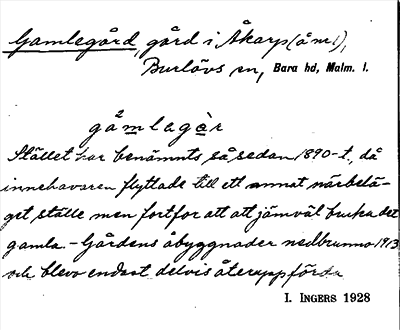 Gamlegård, gård i Åkarp (åm1),
Burlövs sn, Bara hd, Malm. l.
gåmlagàr
Stället har benämnts så sedan 1890-t., då
innehavaren flyttade till ett annat närbelä-
get ställe men fortfor att att jämväl bruka det
gamla. - Gårdens åbyggnader nedbrunno 1913
och blevo endast delvis återuppförda
I. INGERS 1928